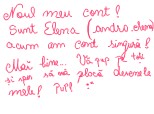 Noul meu cont !
Sunt Elena (andra.elena)
acum am cont singură !
Mai bine... Vă pup pe toți
și sper să vă placă desenele
mele! PUP!